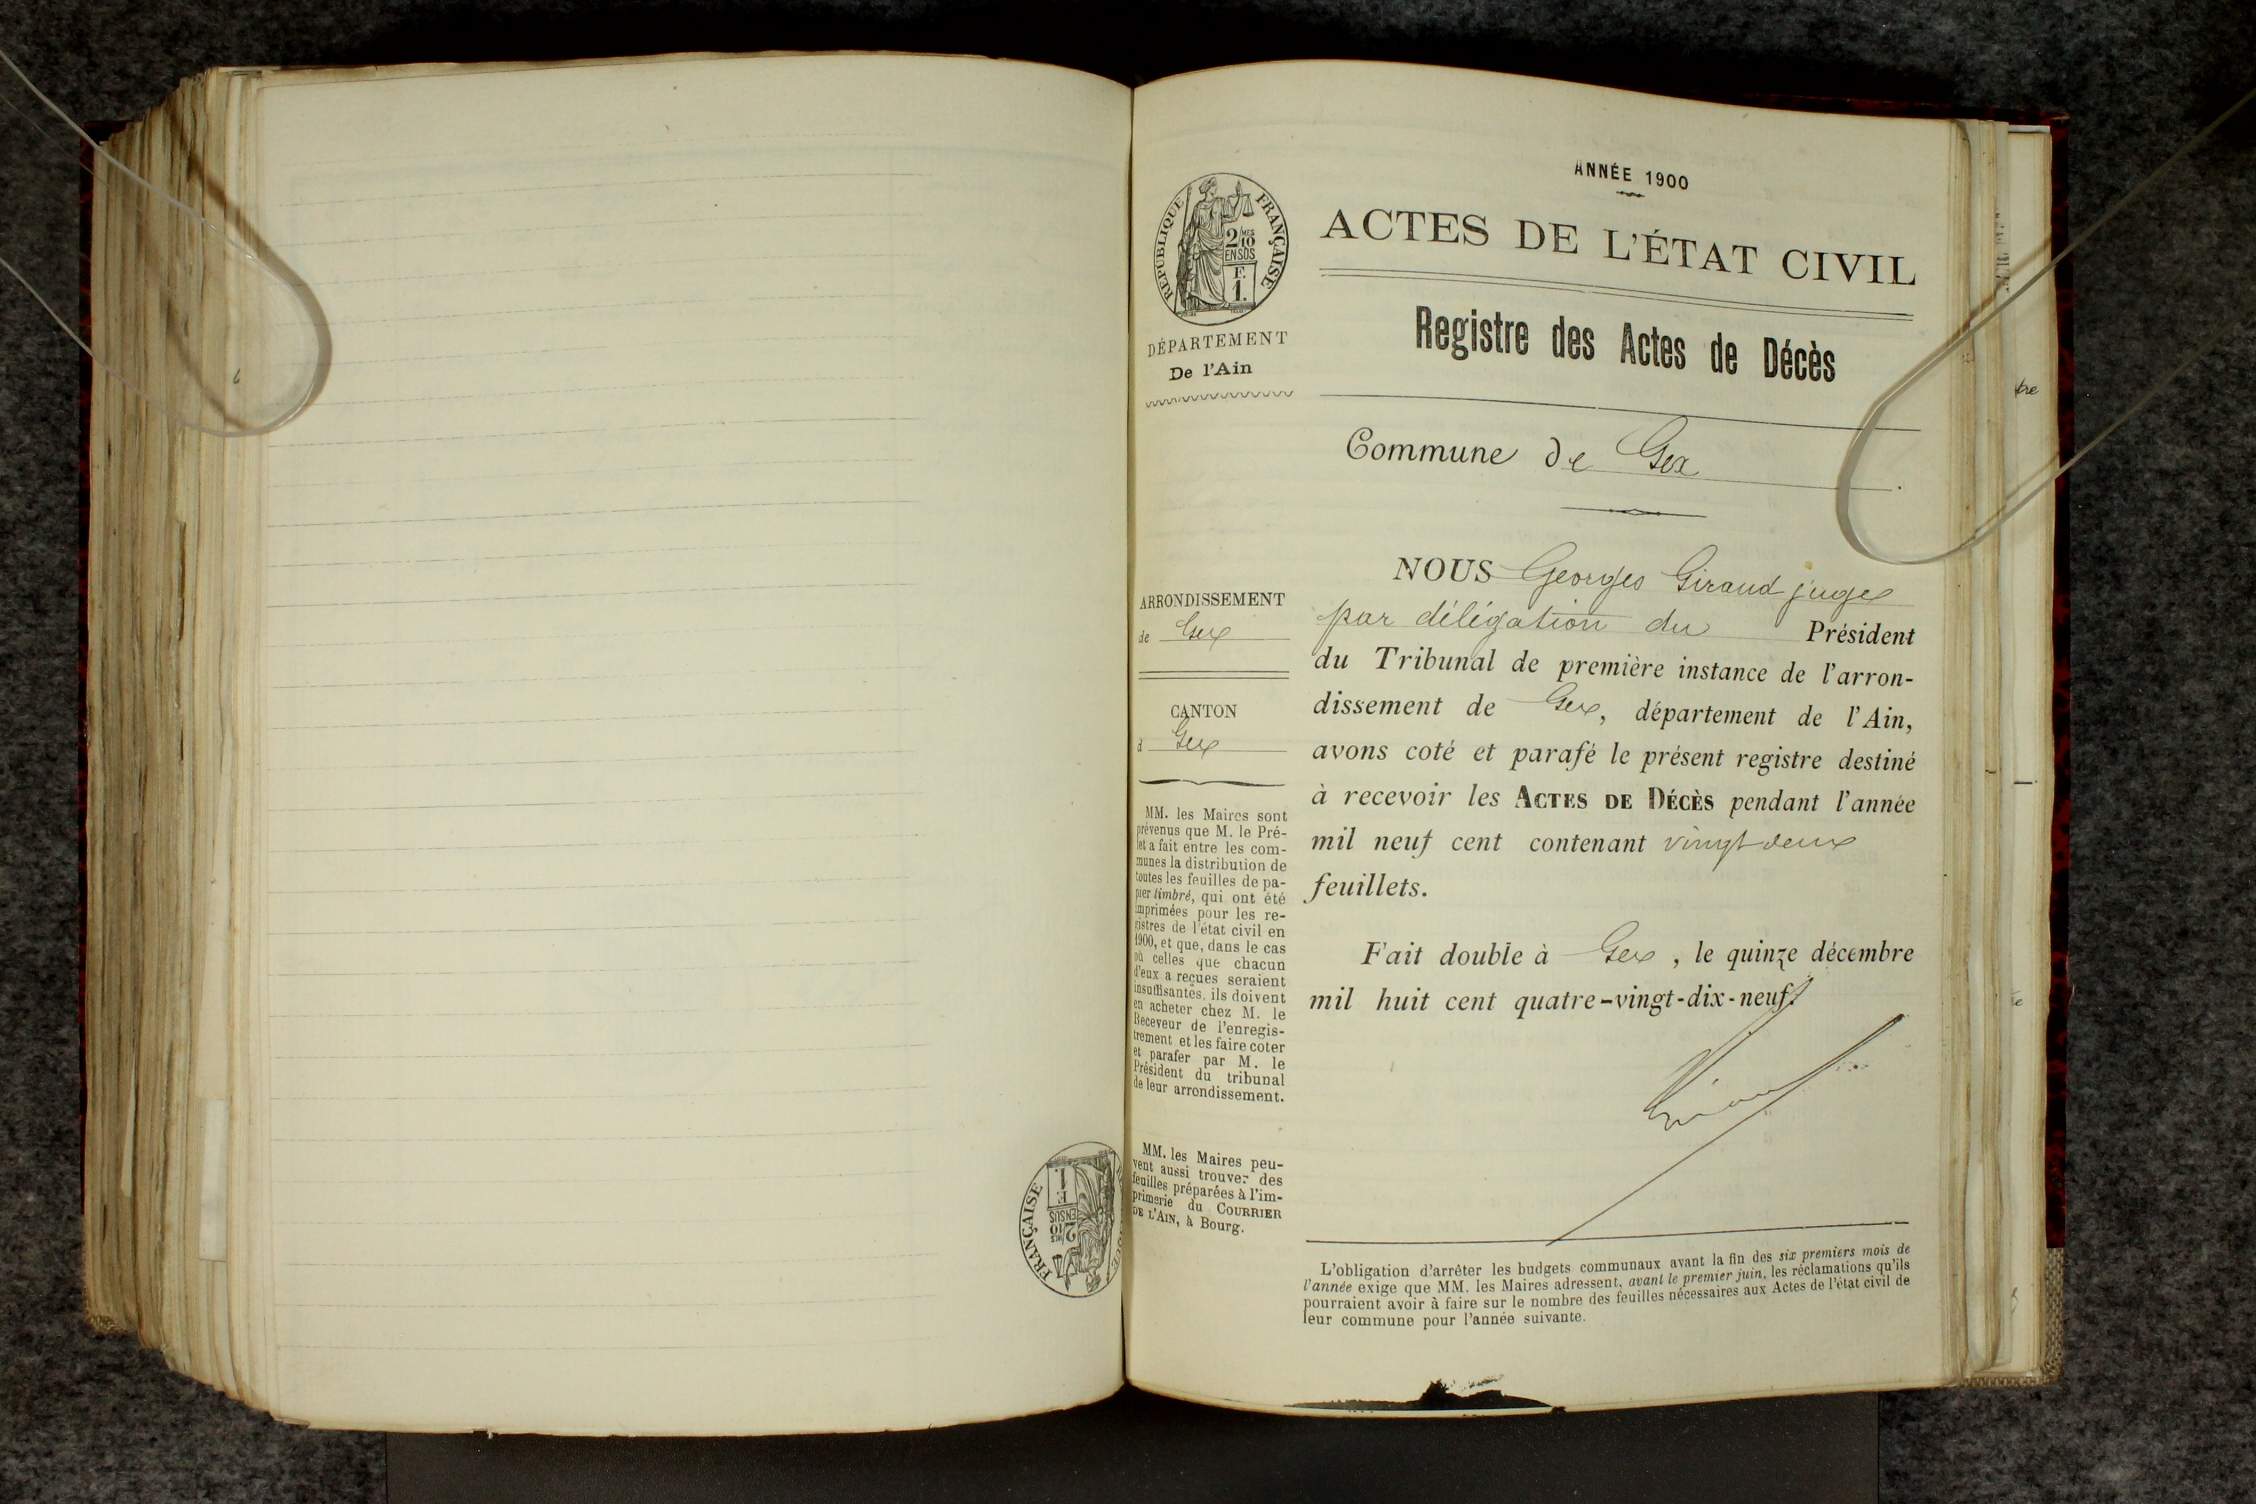 ANNÉE 1900
ACTES DE L'ÉTAT CIVIL
Registre des Actes de Décès
Commune de Gex
RÉPUBLIQUE FRANÇAISE
2/10 MES
EN SUS
F.
1.
DÉPARTEMENT
De l'Ain
ARRONDISSEMENT
de Gex
CANTON
d Gex
MM. les Maires sont
prévenus que M. le Pré-
fet a fait entre les com-
munes la distribution de
toutes les feuilles de pa-
pier timbré, qui ont été
imprimées pour les re-
gistres de l'état civil en
1900, et que, dans le cas
où celles que chacun
d'eux a reçues seraient
insuffisantes, ils doivent
en acheter chez M. le
Receveur de l'enregis-
trement et les faire coter
et parafer par M. le
Président du tribunal
de leur arrondissement.
MM. les Maires peu-
vent aussi trouver des
feuilles préparées à l'im-
primerie du COURRIER
DE L'AIN, à Bourg.
NOUS Georges Giraud juge
par délégation du Président
du Tribunal de première instance de l'arron-
dissement de Gex, département de l'Ain,
avons coté et parafé le présent registre destiné
à recevoir les ACTES DE DÉCÈS pendant l'année
mil neuf cent contenant vingt deux
feuillets.
Fait double à Gex, le quinze décembre
mil huit cent quatre-vingt-dix-neuf.
L'obligation d'arrêter les budgets communaux avant la fin des six premiers mois de
l'année exige que MM. les Maires adressent, avant le premier juin, les réclamations qu'ils
pourraient avoir à faire sur le nombre des feuilles nécessaires aux Actes de l'état civil de
leur commune pour l'année suivante.
FRANÇAISE
2/10 MES
EN SUS
F.
1.